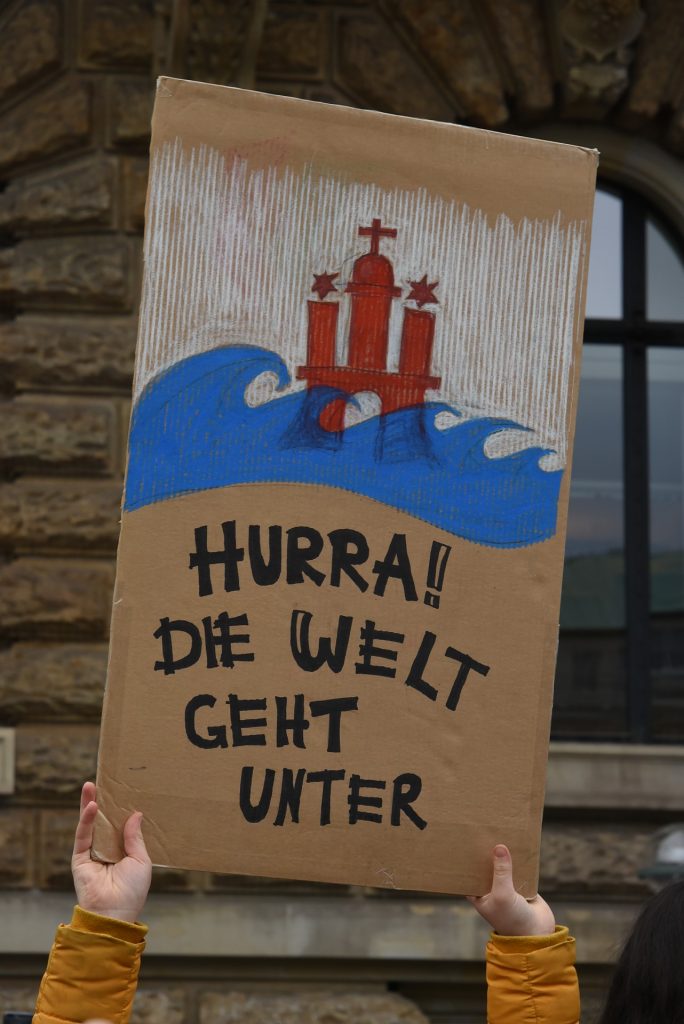 HURRA!
DIE WELT
GEHT
UNTER